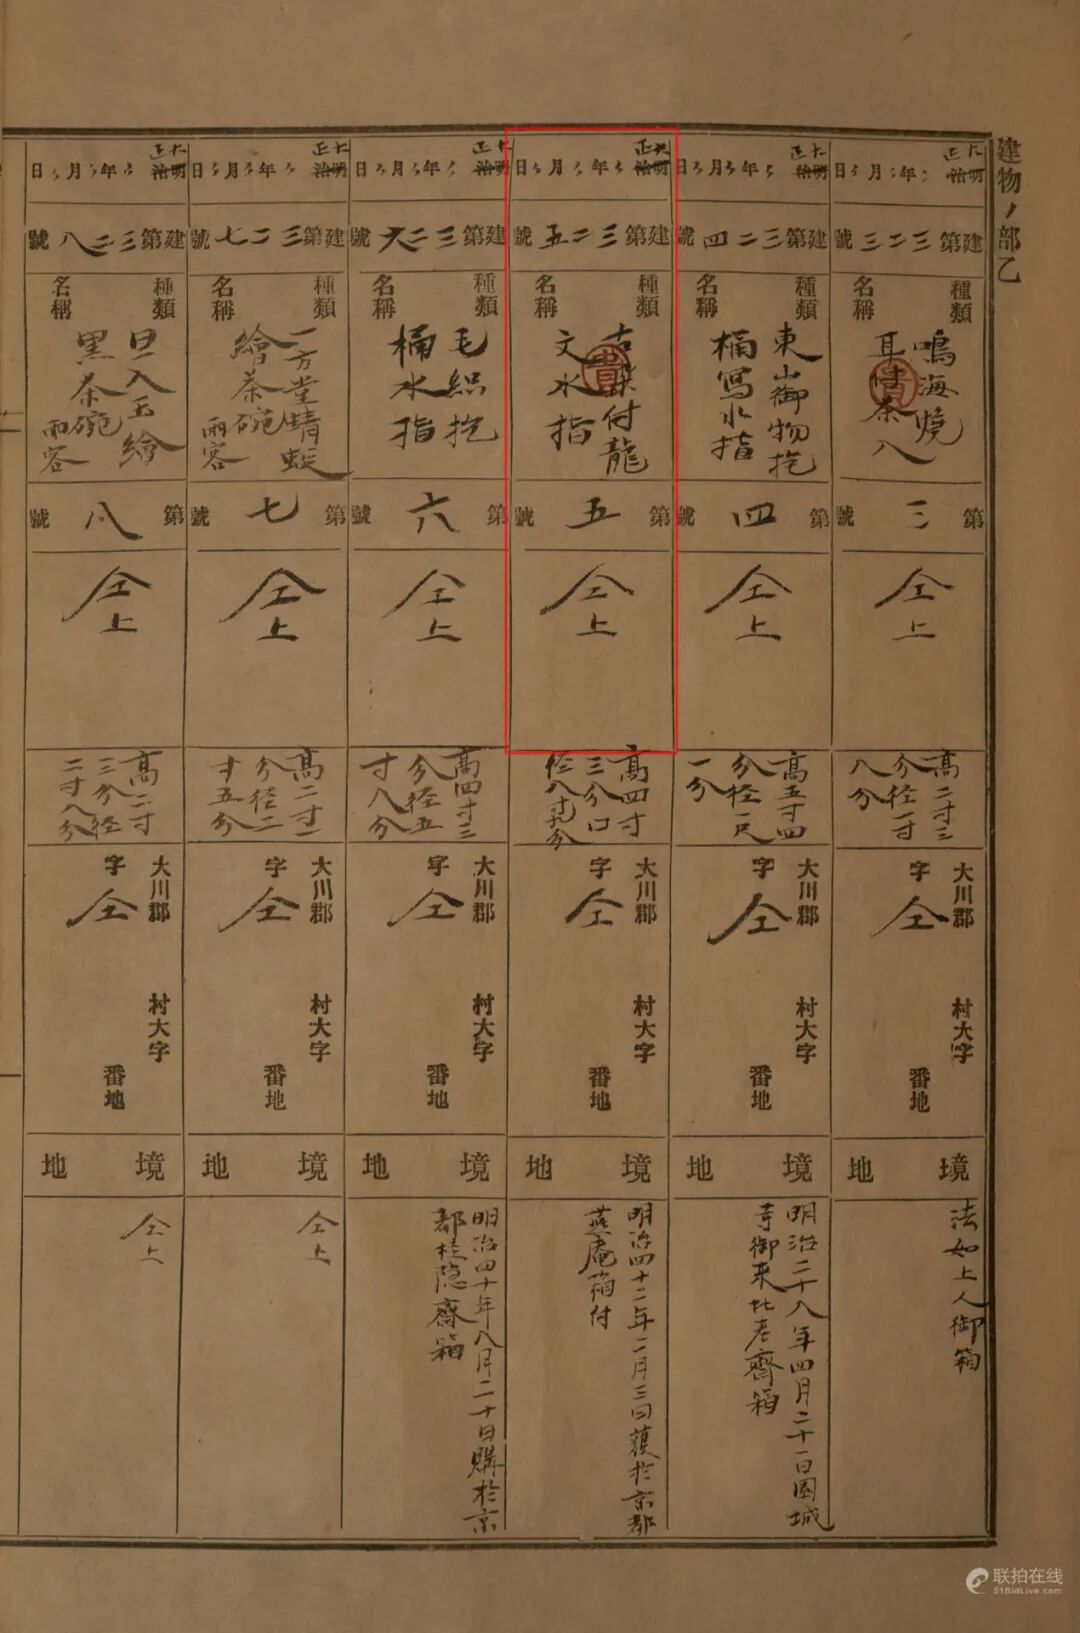 建物ノ部乙
大正
明治
年
月
日
建第三二三號
種類
名稱
鳴海燒
耳付茶入
第三號
仝上
高二寸三
分径一寸
八分
大川郡
村大字
字仝
番地
境地
法如上人御箱
大正
明治
年
月
日
建第三二四號
種類
名稱
東山御物抱
桶写水指
第四號
仝上
高五寸四
分径一尺
一分
大川郡
村大字
字仝
番地
境地
明治三十八年四月二十一日園城
寺御来
齋箱
大正
明治
年
月
日
建第三二五號
種類
名稱
古染付龍
文水指
貴
第五號
仝上
高四寸
三分口
径八寸
大川郡
村大字
字仝
番地
境地
明治四十二年二月三日獲於京都
燕庵箱付
大正
明治
年
月
日
建第三二六號
種類
名稱
毛織抱
桶水指
第六號
仝上
高四寸三
分径五
寸八分
大川郡
村大字
字仝
番地
境地
明治四十年八月二十日購於京
都桂隠齋箱
大正
明治
年
月
日
建第三二七號
種類
名稱
一方堂蜻蜓
繪茶碗
雨客
第七號
仝上
高二寸一
分径二
寸五分
大川郡
村大字
字仝
番地
境地
仝上
大正
明治
年
月
日
建第三二八號
種類
名稱
旦入玉繪
黒茶碗
雨客
第八號
仝上
高二寸
三分径
二寸八分
大川郡
村大字
字仝
番地
境地
仝上
联拍在线
51BidLive.com